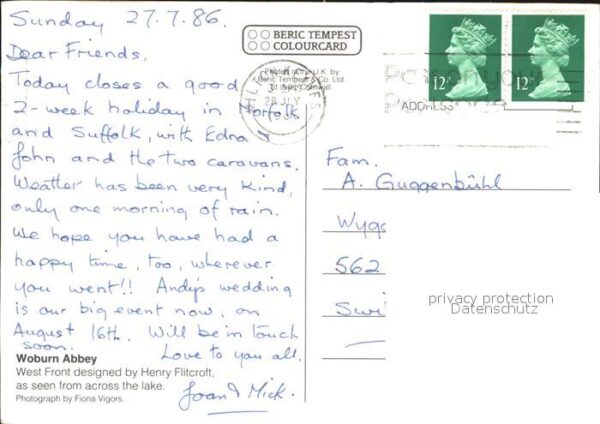 Sunday 27.7.86.
Dear Friends,
Today closes a good
2-week holiday in Norfolk
and Suffolk, with Edna &
John and the two caravans.
Weather has been very kind,
only one morning of rain.
We hope you have had a
happy time, too, wherever
you went!! Andy's wedding
is our big event now, on
August 16th. Will be in touch
soon. Love to you all.
Joan & Mick.
Woburn Abbey
West Front designed by Henry Flitcroft,
as seen from across the lake.
Photograph by Fiona Vigors.
BERIC TEMPEST
COLOURCARD
Printed in the U.K. by
Beric Tempest & Co. Ltd
St Ives Cornwall.
28 JLY
12
12
ADDRESS
Fam.
A. Guggenbühl
Wygg
562
Swi
privacy protection
Datenschutz